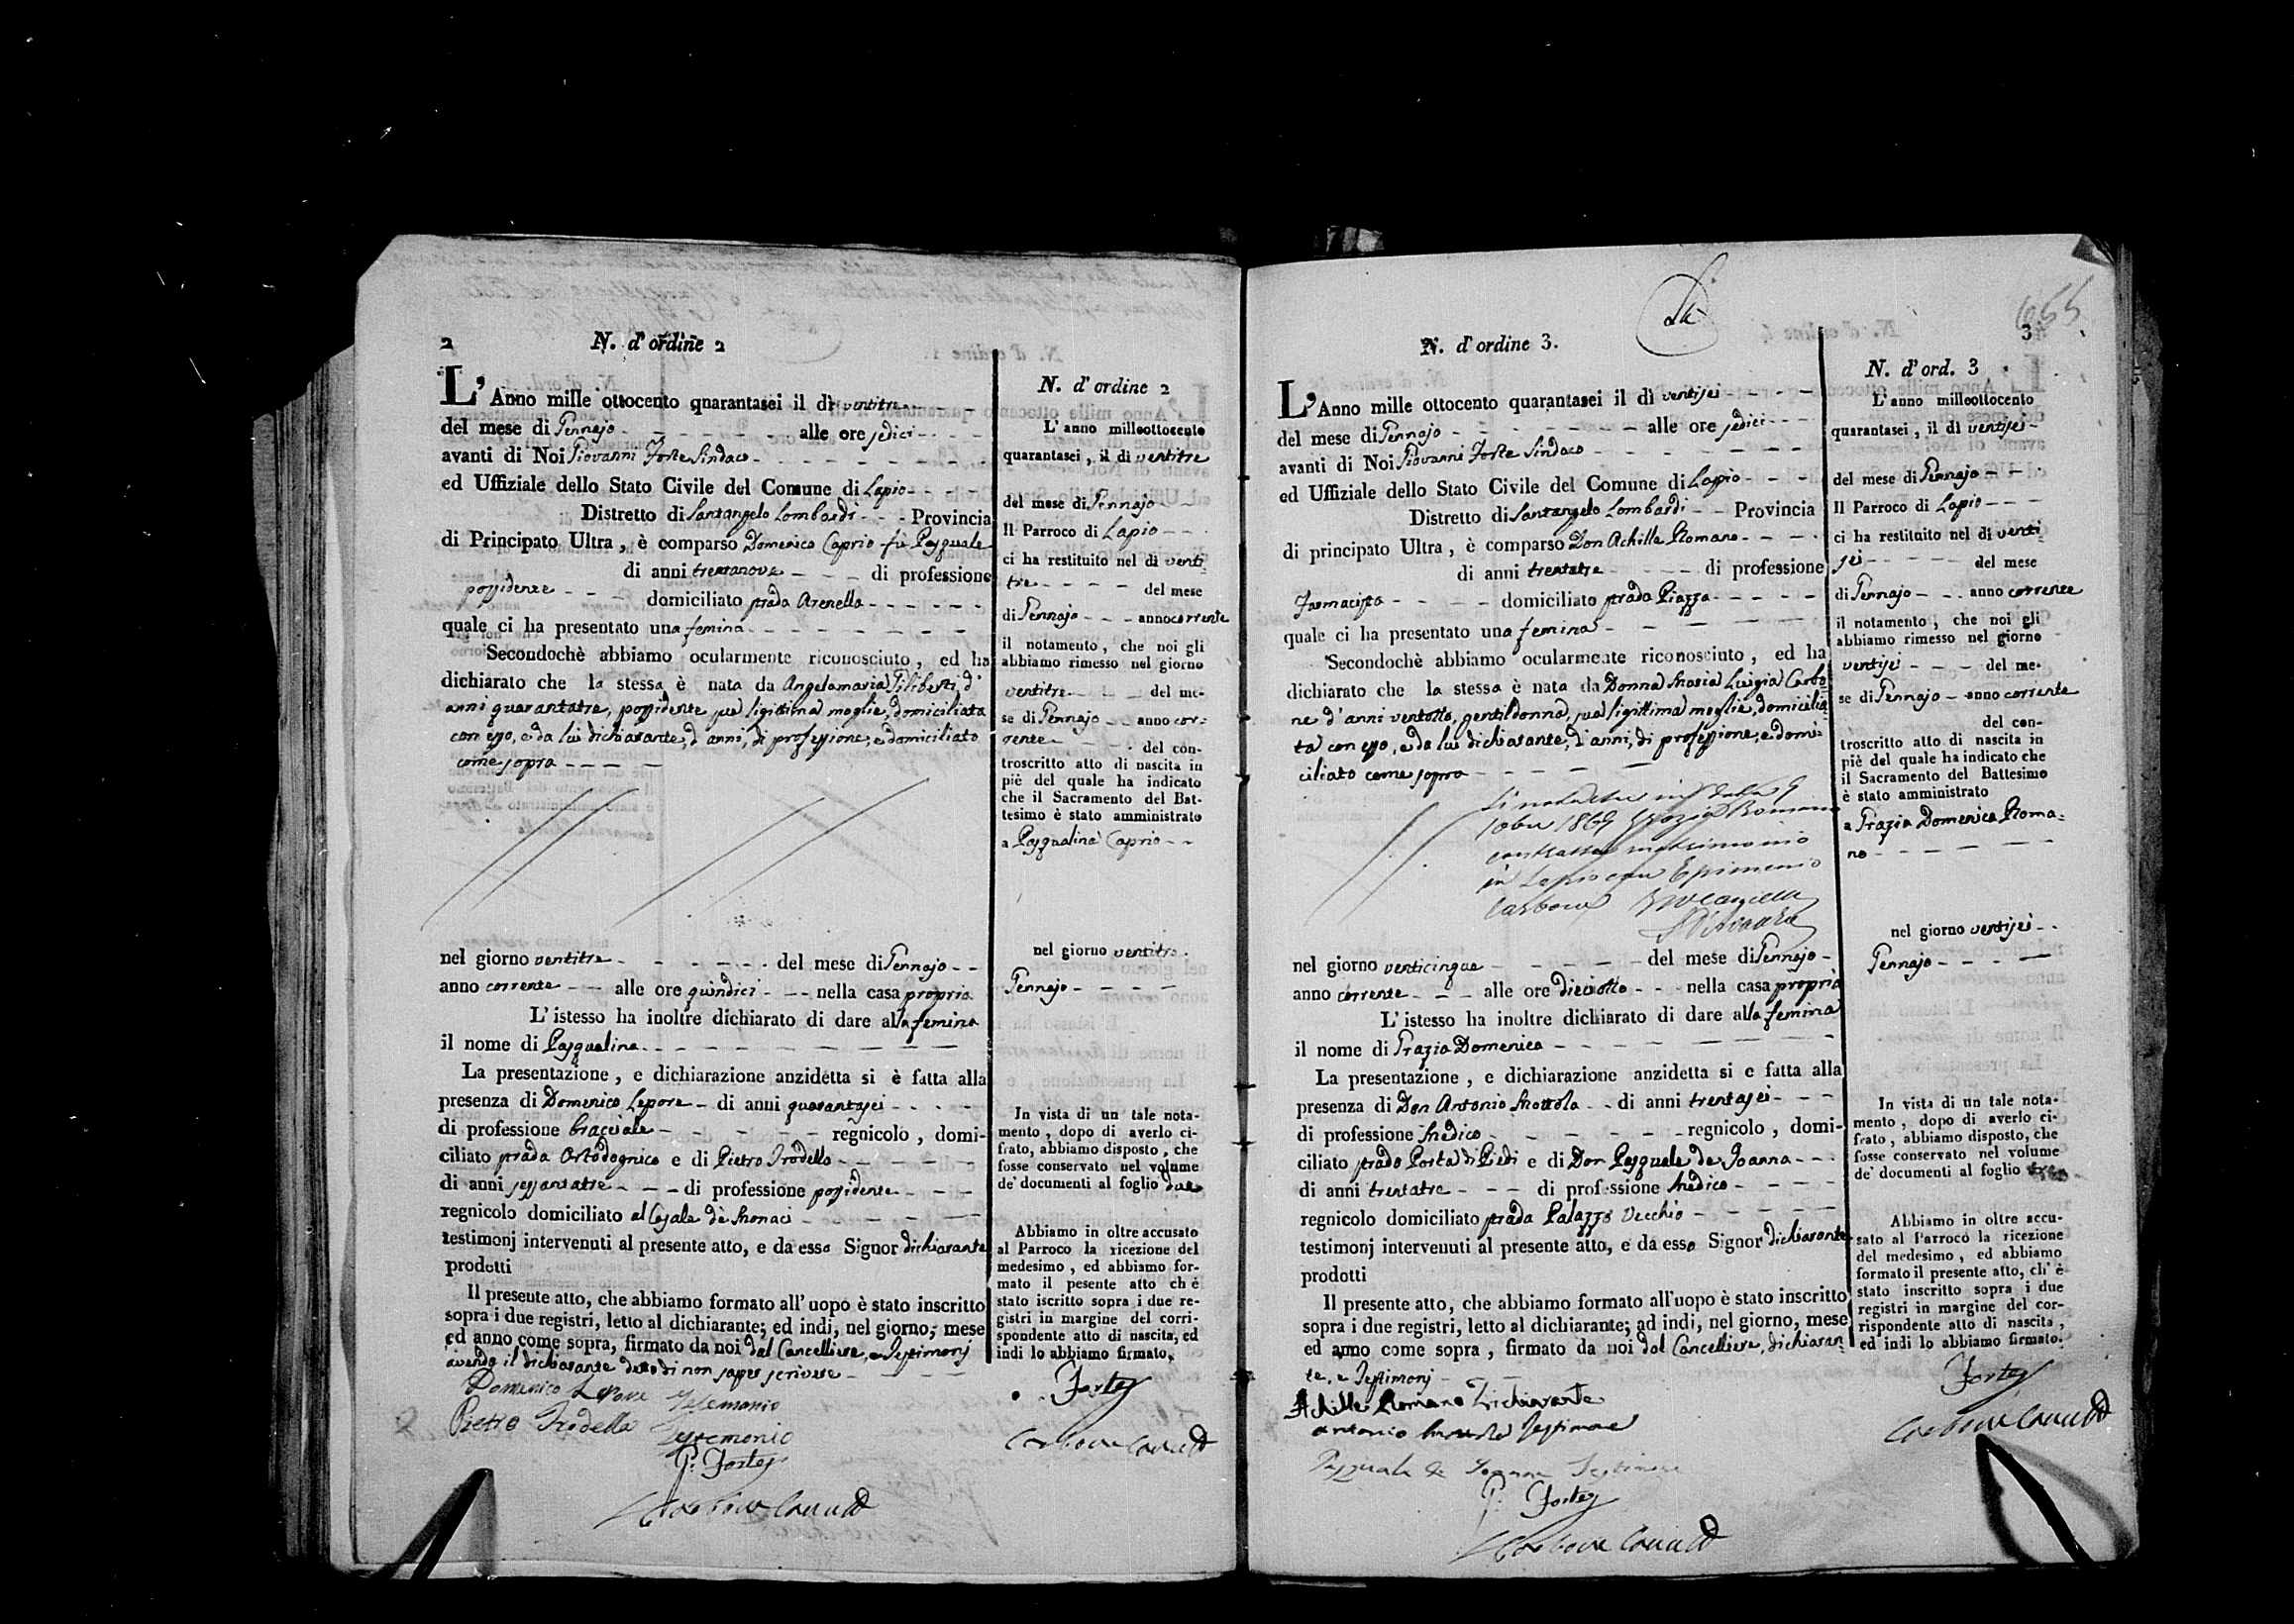 2
N. d' ordine 2
L' Anno mille ottocento quarantasei il dì ventitre
del mese di Gennajo alle ore sedici
avanti di Noi Giovanni Forte Sindaco
ed Uffiziale dello Stato Civile del Comune di Lapio
Distretto di Santangelo Lombardi Provincia
di Principato Ultra, è comparso Domenico Caprio fù Pasquale
di anni trentanove di professione
possidente domiciliato strada Arenella
quale ci ha presentato una femina
Secondochè abbiamo ocularmente riconosciuto, ed ha
dichiarato che la stessa è nata da Angelamaria Siliberti, d'
anni quarantatre, possidente sua ligittima moglie, domiciliata
con esso, e da lui dichiarante, d'anni, di professione, e domiciliato
come sopra
nel giorno ventitre del mese di Gennajo
anno corrente alle ore quindici nella casa propria
L' istesso ha inoltre dichiarato di dare alla femina
il nome di Pasqualina
La presentazione, e dichiarazione anzidetta si è fatta alla
presenza di Domenico Lepore di anni quarantasei
di professione bracciale regnicolo, domi-
ciliato strada Ortodognico e di Pietro Trodella
di anni sessantatre di professione possidente
regnicolo domiciliato al Casale dè Monaci
testimonj intervenuti al presente atto, e da esso Signor dichiarante
prodotti
Il presente atto, che abbiamo formato all' uopo è stato inscritto
sopra i due registri, letto al dichiarante; ed indi, nel giorno, mese
ed anno come sopra, firmato da noi dal Cancelliere, e Testimonj
avendo il dichiarante detto di non saper scrivere
Domenico Lepore Testimonio
Pietro Trodella Testimonio
G. Forte
Carbone
N. d' ordine 2
L' anno milleottocento
quarantasei, il dì ventitre
del mese di Gennajo
Il Parroco di Lapio
ci ha restituito nel dì venti
tre del mese
di Gennajo anno corrente
il notamento, che noi gli
abbiamo rimesso nel giorno
ventitre del me-
se di Gennajo anno cor=
rente del con-
troscritto atto di nascita in
piè del quale ha indicato
che il Sacramento del Bat-
tesimo è stato amministrato
a Pasqualina Caprio
nel giorno ventitre
Gennajo
In vista di un tale nota-
mento, dopo di averlo ci-
frato, abbiamo disposto, che
fosse conservato nel volume
de' documenti al foglio due
Abbiamo in oltre accusato
al Parroco la ricezione del
medesimo, ed abbiamo for-
mato il pesente atto ch è
stato iscritto sopra i due re-
gistri in margine del corri-
spondente atto di nascita, ed
indi lo abbiamo firmato.
Forte
Carbone
655
3
N. d' ordine 3.
L' Anno mille ottocento quarantasei il dì ventisei
del mese di Gennajo alle ore sedici
avanti di Noi Giovanni Forte Sindaco
ed Uffiziale dello Stato Civile del Comune di Lapio
Distretto di Santangelo Lombardi Provincia
di principato Ultra, è comparso Don Achille Romano
di anni trentatre di professione
Farmacista domiciliato strada Piazza
quale ci ha presentato una femina
Secondochè abbiamo ocularmente riconosciuto, ed ha
dichiarato che la stessa è nata da Donna Maria Luigia Carbo
ne d'anni ventotto, gentildonna, sua ligittima moglie, domicilia=
ta con esso, e da lui dichiarante, d'anni, di professione, e domi=
ciliato come sopra
1869 Grazia Romano
matrimonio
in Lapio con Epimenio
Carbone
nel giorno venticinque del mese di Gennajo
anno corrente alle ore dieciotto nella casa propria
L' istesso ha inoltre dichiarato di dare alla femina
il nome di Grazia Domenica
La presentazione, e dichiarazione anzidetta si e fatta alla
presenza di Don Antonio Mottola di anni trentasei
di professione Medico regnicolo, domi-
ciliato strada Porta di Piedi e di Don Pasquale de Joanna
di anni trentatre di professione Medico
regnicolo domiciliato strada Palazzo Vecchio
testimonj intervenuti al presente atto, e da esso Signor dichiarante
prodotti
Il presente atto, che abbiamo formato all'uopo è stato inscritto
sopra i due registri, letto al dichiarante; ad indi, nel giorno, mese
ed anno come sopra, firmato da noi dal Cancelliere, dichiaran=
te, e Testimonj
Achille Romano Dichiarante
Antonio Mottola Testimone
Pasquale de Joanna Testimone
G. Forte
Carbone
N. d' ord. 3
L' anno milleottocento
quarantasei, il dì ventisei
del mese di Gennajo
Il Parroco di Lapio
ci ha restituito nel dì venti
sei del mese
di Gennajo anno corrente
il notamento, che noi gli
abbiamo rimesso nel giorno
ventisei del me-
se di Gennajo anno corrente
del con-
troscritto atto di nascita in
piè del quale ha indicato che
il Sacramento del Battesimo
è stato amministrato
a Grazia Domenica Roma=
no
nel giorno ventisei
Gennajo
In vista di un tale nota-
mento, dopo di averlo ci-
frato, abbiamo disposto, che
fosse conservato nel volume
de' documenti al foglio tre
Abbiamo in oltre accu-
sato al Parroco la ricezione
del medesimo, ed abbiamo
formato il presente atto, ch' è
stato inscritto sopra i due
registri in margine del cor-
rispondente atto di nascita,
ed indi lo abbiamo firmato.
Forte
Carbone